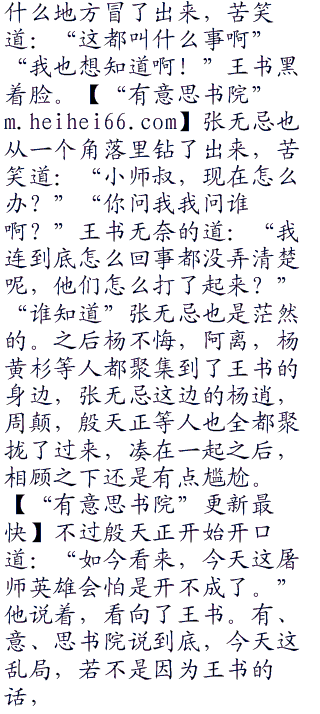 什么地方冒了出来，苦笑
道：“这都叫什么事啊”
“我也想知道啊！”王书黑
着脸。【“有意思书院”
m.heihei66.com】张无忌也
从一个角落里钻了出来，苦
笑道：“小师叔，现在怎么
办？”“你问我我问谁
啊？”王书无奈的道：“我
连到底怎么回事都没弄清楚
呢，他们怎么打了起来？”
“谁知道”张无忌也是茫然
的。之后杨不悔，阿离，杨
黄杉等人都聚集到了王书的
身边，张无忌这边的杨逍，
周颠，殷天正等人也全都聚
拢了过来，凑在一起之后，
相顾之下还是有点尴尬。
【“有意思书院”更新最
快】不过殷天正开始开口
道：“如今看来，今天这屠
师英雄会怕是开不成了。”
他说着，看向了王书。有、
意、思书院说到底，今天这
乱局，若不是因为王书的
话，